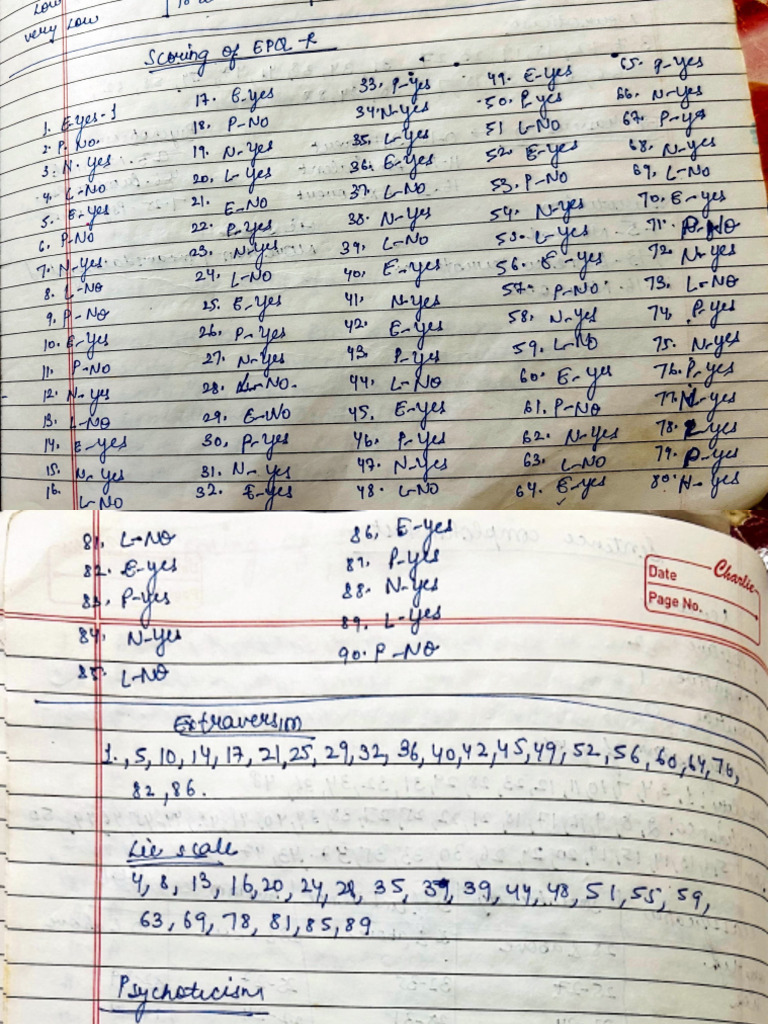 Low
very Low
Scoring of EPQ-R
1. E-yes-1
2. P-No.
3. N-yes
4. L-NO
5. E-yes
6. P-NO
7. N-yes.
8. L-NO
9. P-NO
10. E-yes
11. P-NO
12. N-yes
13. L-NO
14. E-yes
15. N-yes
16. L-NO
17. E-yes
18. P-NO
19. N-yes
20. L-yes
21. E-NO
22. P-yes
23. N-yes
24. L-NO
25. E-yes
26. P-yes
27. N-yes
28. L-NO.
29. E-NO
30. P-yes
31. N-yes
32. E-yes
33. P-yes
34. N-yes
35. L-yes
36. E-yes
37. L-NO
38. N-yes
39. L-NO
40. E-yes
41. N-yes
42. E-yes
43. P-yes
44. L-NO
45. E-yes
46. P-yes
47. N-yes
48. L-NO
49. E-yes
50. P-yes
51 L-NO
52. E-yes
53. P-NO
54. N-yes
55. L-yes
56. E-yes
57. P-NO
58. N-yes
59. L-NO
60. E-yes
61. P-NO
62. N-yes
63. L-NO
64. E-yes
65. P-yes
66. N-yes
67. P-yes
68. N-yes
69. L-NO
70. E-yes
71. P-NO
72. N-yes
73. L-NO
74. P-yes
75. N-yes
76. P-yes
77. N-yes
78. L-yes
79. P-yes
80. N-yes
81. L-NO
82. E-yes
83. P-yes
84. N-yes
85. L-NO
86. E-yes
87. P-yes
88. N-yes
89. L-yes
90. P-NO
Charlie
Date
Page No.
Extraversim
1., 5, 10, 14, 17, 21, 25, 29, 32, 36, 40, 42, 45, 49, 52, 56, 60, 64, 70,
82, 86.
Lie scale
4, 8, 13, 16, 20, 24, 28, 35, 37, 39, 44, 48, 51, 55, 59,
63, 69, 78, 81, 85, 89
Psychoticism